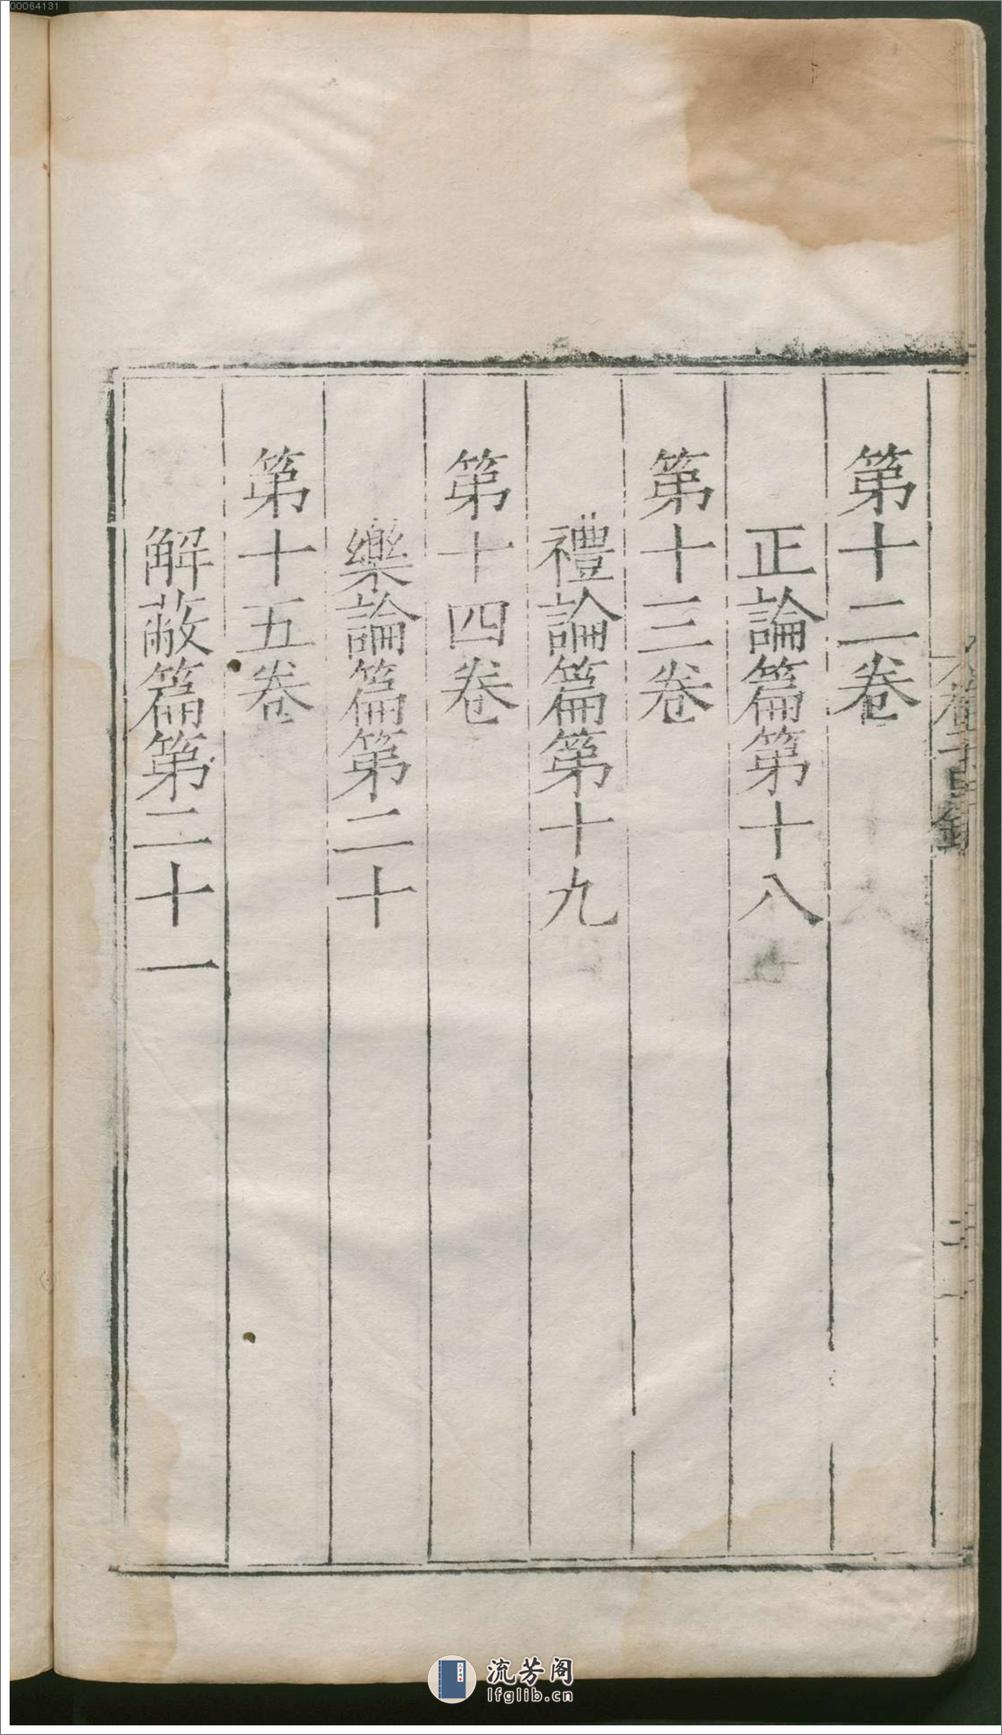 00064131
第十二卷
正論篇第十八
第十三卷
禮論篇第十九
第十四卷
樂論篇第二十
第十五卷
解蔽篇第二十一
流芳阁
lfglib.cn